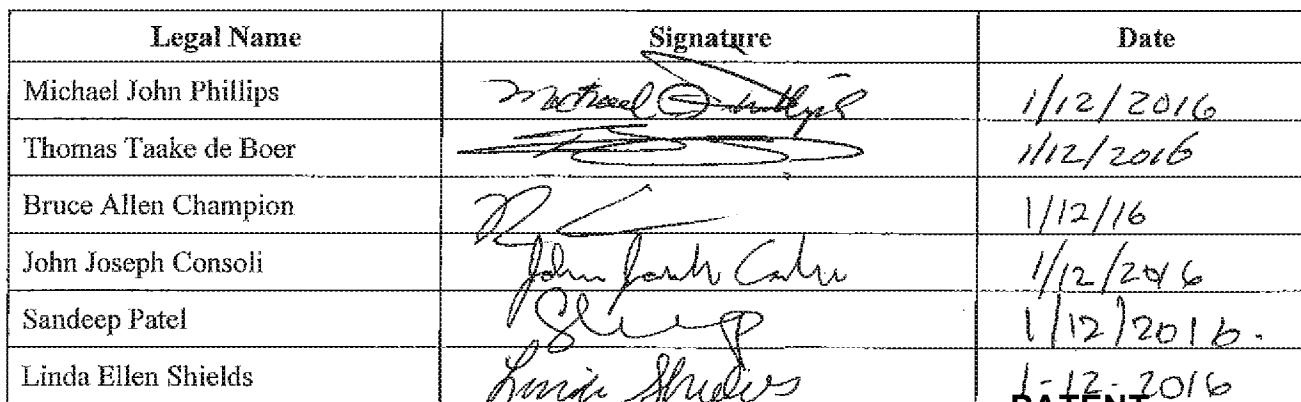 Legal Name Signature Date
Michael John Phillips Michael J Phillips 1/12/2016
Thomas Taake de Boer 1/12/2016
Bruce Allen Champion 1/12/16
John Joseph Consoli John Joseph Consoli 1/12/2016
Sandeep Patel 1/12/2016.
Linda Ellen Shields Linda Shields 1-12-2016
PATENT